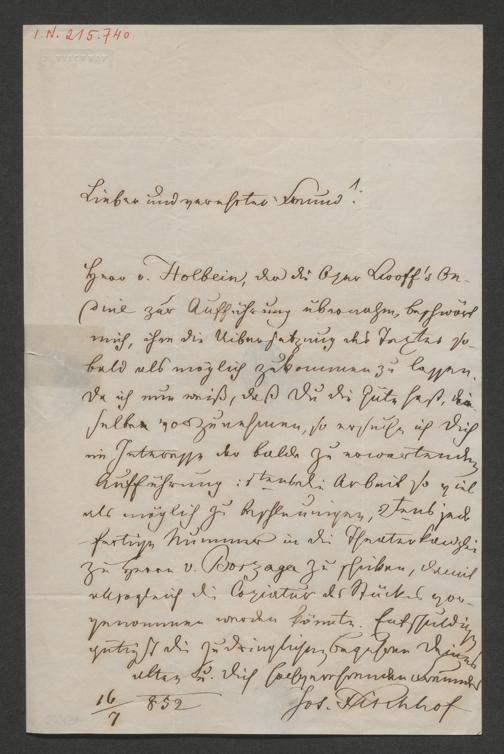 I.N. 215.740
Lieber und verehrter Freund!
Herr v. Holbein, der die Oper Lwoff's On-
dine zur Aufführung übernahm, beschwört
mich, ihm die Uibersetzung des Textes so-
bald als möglich zukommen zu lassen.
Da ich nun weiß, daß Du die Güte hast, die-
selben vorzunehmen, so ersuche ich Dich
im Interesse der balde zu erwartenden
Aufführung: 1stens die Arbeit so viel
als möglich zu beschleunigen, 2tens jede
fertige Nummer in die Theaterkanzlei
zu Herrn v. Borzaga zu schicken, damit
allsogleich die Copiatur des Stückes vor-
genommen werden könnte. Entschuldige
gütigst die zudringlichen Begehren Deines
alten u. Dich hochverehrenden Freundes
16/7 852 Jos. Fischhof